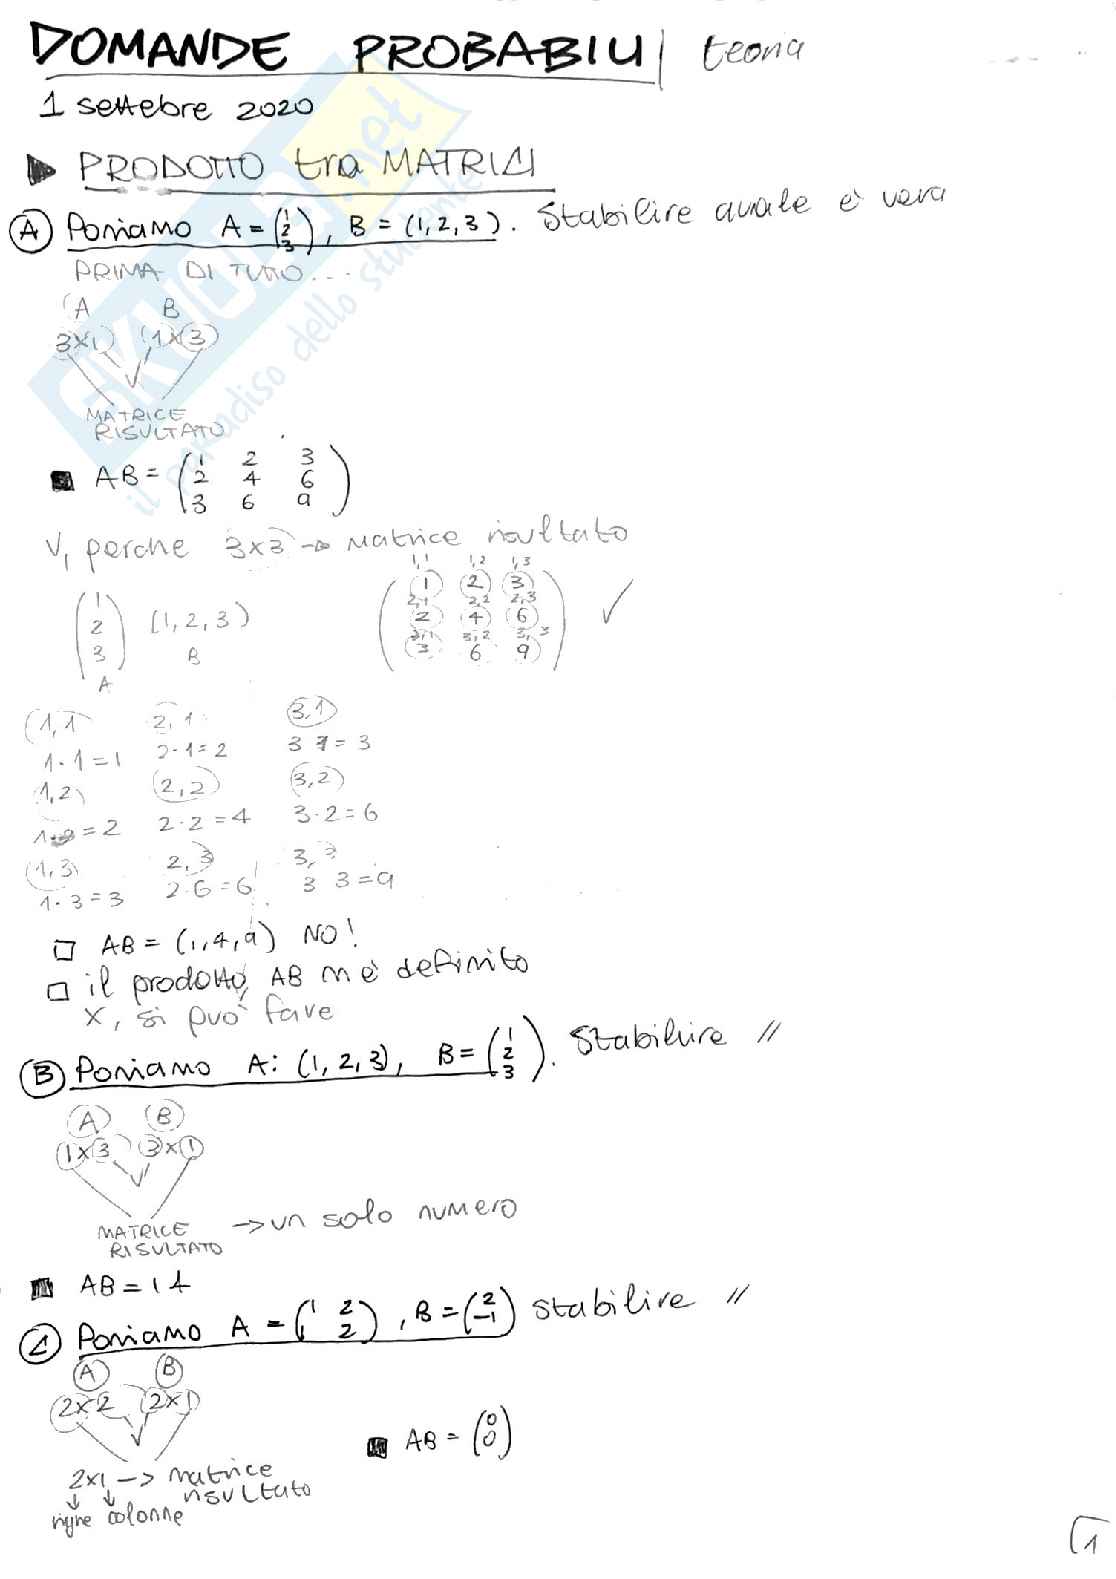 DOMANDE PROBABILI | teoria
1 settembre 2020
▶ PRODOTTO tra MATRICI
Ⓐ Poniamo A = (1 2 3), B = (1, 2, 3). Stabilire quale è vera
PRIMA DI TUTTO...
A B
3x1 1x3
MATRICE
RISULTATO
■ AB = (1 2 3
2 4 6
3 6 9)
V, perche 3x3 → Matrice risultato
1,1 1,2 1,3
1 2 3
2,1 2,2 2,3
(1 2 3) (1, 2, 3) 2 4 6 ✓
3,1 3,2 3,3
3 6 9
A B
(1,1) 2,1 (3,1)
1·1=1 2·1=2 3 1=3
(1,2) (2,2) (3,2)
1·2=2 2·2=4 3·2=6
(1,3) 2,3 3,3
1·3=3 2·6=6 3 3=9
□ AB = (1,4,9) NO!
□ il prodotto AB n è definito
X, si può fare
Ⓑ Poniamo A: (1, 2, 3), B = (1 2 3). Stabilire //
A B
1x3 3x1
MATRICE → un solo numero
RISULTATO
■ AB = 14
Poniamo A = (1 2
1 2), B = (2 -1) stabilire //
A B
2x2 2x1
■ AB = (0 0)
2x1 → matrice
risultato
righe colonne
1
il paradiso dello studente